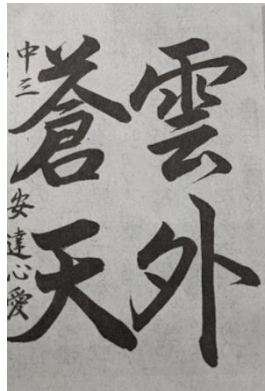 雲外
蒼天
中三 安達心愛